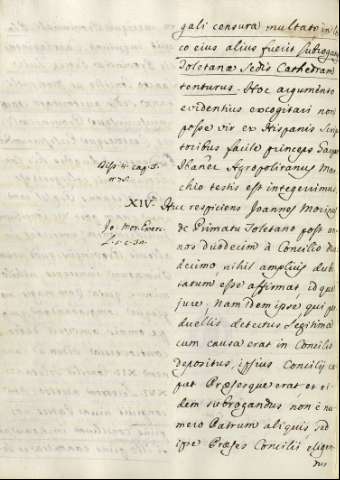 gali censura multato in lo-
co eius alius fuerit subrogatus
Toletanæ Sedis Cathedram
tenturus. Hoc argumento
evidentius excogitari non
posse vir ex Hispanis Scrip
toribus facile princeps Gaspar
Ibañez Agropolitanus Mar
chio testis est integerrimus
Diss. 4. cap. 5.
XIV. Huc respiciens Joannes
de Primatu Toletano post an-
nos duodecim à Concilio
decimo, nihil amplius dubi
tatum esse affirmat, idque
jure, nam idem ipse qui per
duellis detectus legitima
cum causa erat in Concilio
depositus, ipsius Concilij ca
put Præsesque erat, et ei
dem subrogandus non è nu
mero Patrum aliquis, sed
ipse Præses Concilij eligen
dus